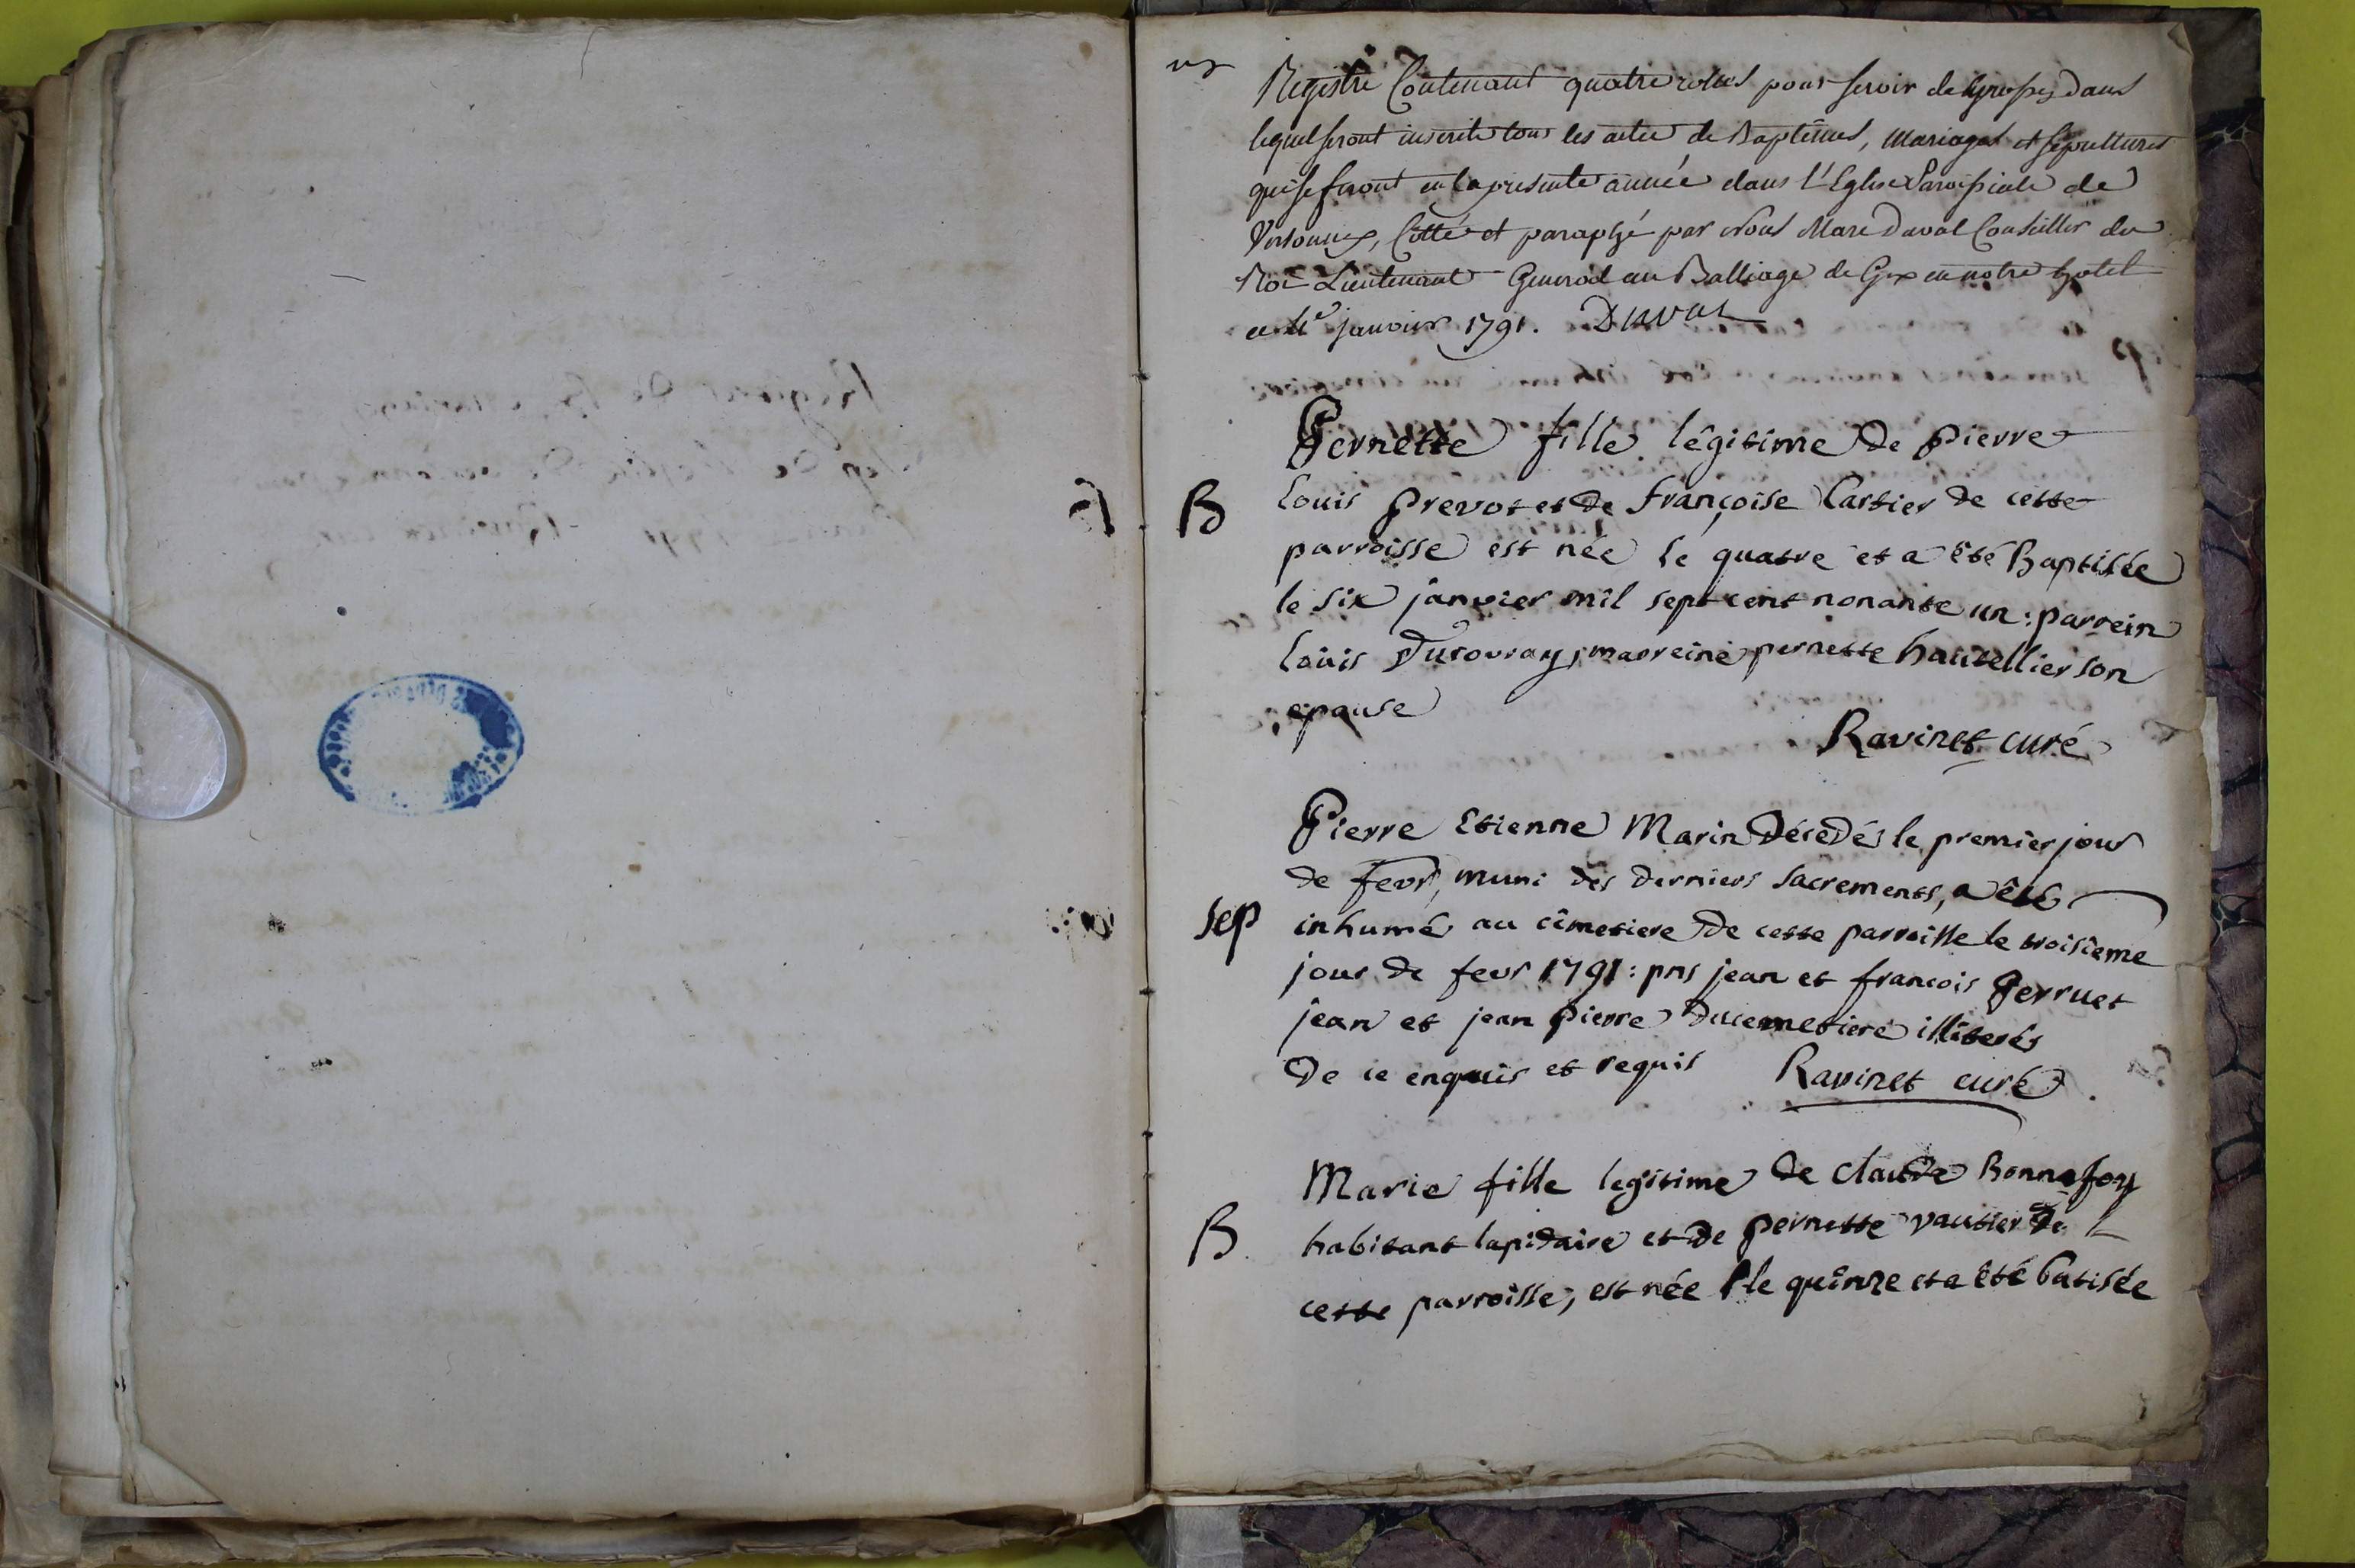 Registre Contenant quatre roles pour servir de Grosse, dans
lequel seront inscrits tous les actes de Baptêmes, Mariages et sépultures
qui se feront en la presente année dans l'Eglise Paroissiale de
Versonnex, Cotté et paraphé par Nous Marc Duval Conseiller du
Roi Lieutenant General au Balliage de Gex en notre hotel
ce janvier 1791. Duval
Pernette fille légitime de pierre
B
Louis prevot et de françoise Cartier de cette
parroisse est née le quatre et a été Baptisée
le six janvier mil sept cent nonante un : parrein
Louis Durouvray, marreine pernette hautellier son
epouse
Ravinet curé
Pierre Etienne Marin décedés le premier jour
de fevr, muni des derniers sacrements, a été
sep
inhumé au cimetiere de cette parroisse le troisieme
jour de fevr 1791 : pns jean et francois Perruet
jean et jean pierre Ducemetiere illiterés
De ce enquis et requis Ravinet curé
Marie fille legitime de claude Bonnefoy
B
habitant lapidaire et de pernette vautier de
cette parroisse, est née le quinze et a été batisée